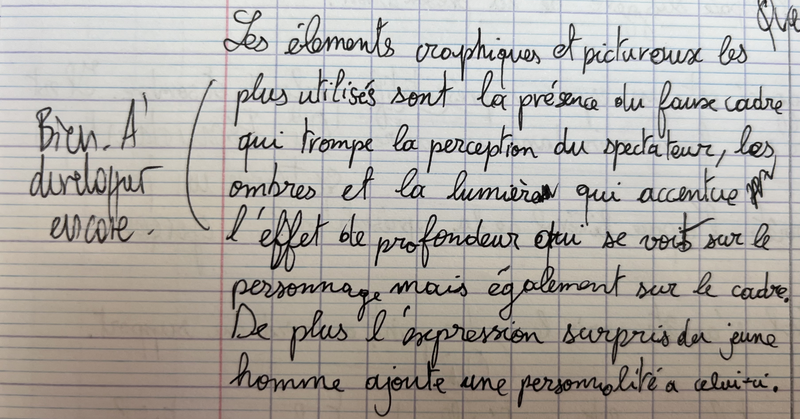 Que
Les élements craphiques et pictureux les
plus utilisés sont la présence du faux cadre
qui trompe la perception du spectateur, les
ombres et la lumière qui accentue
l'effet de profondeur qui se voit sur le
personnage mais également sur le cadre.
De plus l'expression surpris du jeune
homme ajoute une personnalité a celui-ci.
Bien. A
developper
encore.